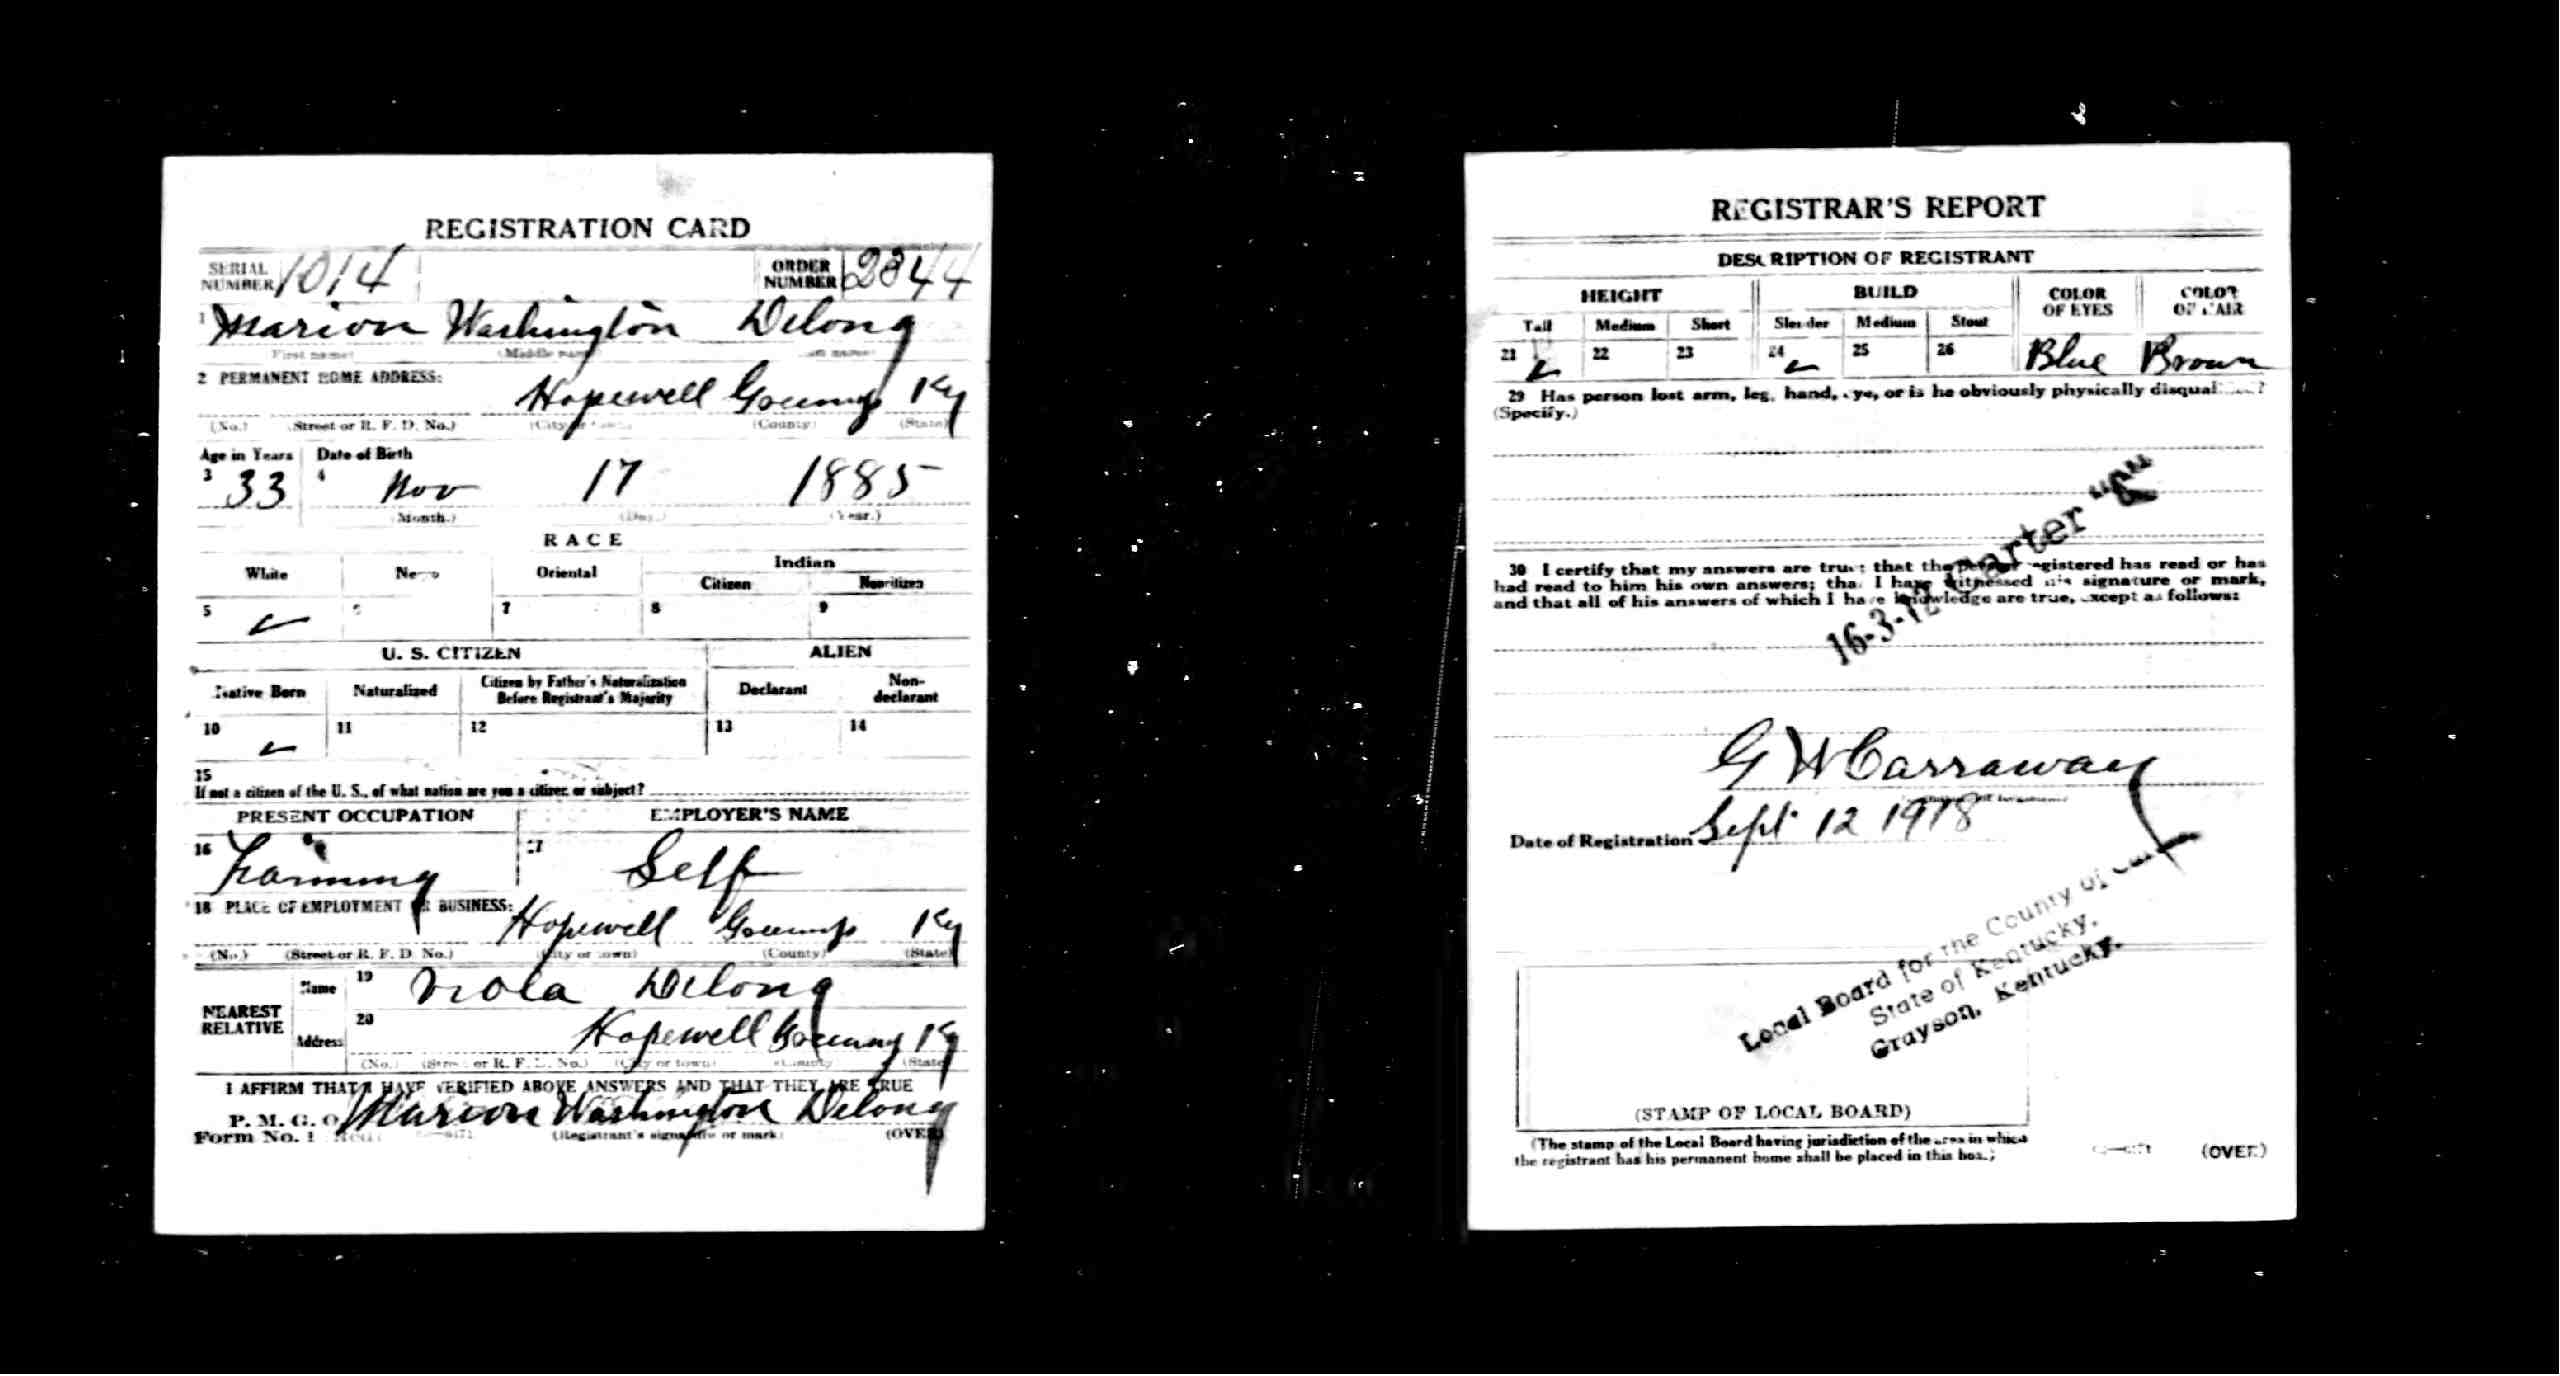 REGISTRATION CARD
SERIAL NUMBER 1014 ORDER NUMBER 2844
1 Marion Washington Delong
(First name) (Middle name)
2 PERMANENT HOME ADDRESS:
Hopewell Ky
(No.) (Street or R. F. D. No.) (City or town) (County) (State)
Age in Years Date of Birth
3 33 4 Nov 17 1885
(Month.) (Day.) (Year.)
RACE
White Negro Oriental Indian
Citizen Noncitizen
5 ✓ 6 7 8 9
U. S. CITIZEN ALIEN
Native Born Naturalized Citizen by Father's Naturalization Before Registrant's Majority Declarant Non-declarant
10 ✓ 11 12 13 14
15
If not a citizen of the U. S., of what nation are you a citizen or subject?
PRESENT OCCUPATION EMPLOYER'S NAME
16 Farming 17 Self
18 PLACE OF EMPLOYMENT OR BUSINESS:
Hopewell Ky
(No.) (Street or R. F. D. No.) (City or town) (County) (State)
NEAREST RELATIVE
Name 19 Viola Delong
Address 20 Hopewell Ky
(No.) (Street or R. F. D. No.) (City or town) (County) (State)
I AFFIRM THAT I HAVE VERIFIED ABOVE ANSWERS AND THAT THEY ARE TRUE
P. M. G. O. Marion Washington Delong
Form No. 1 (Registrant's signature or mark) (OVER)
REGISTRAR'S REPORT
DESCRIPTION OF REGISTRANT
HEIGHT BUILD COLOR OF EYES COLOR OF HAIR
Tall Medium Short Slender Medium Stout
21 ✓ 22 23 24 ✓ 25 26 Blue Brown
29 Has person lost arm, leg, hand, eye, or is he obviously physically disqualified?
(Specify.)
16-3-12 Carter "C"
30 I certify that my answers are true; that the person registered has read or has
had read to him his own answers; that I have witnessed his signature or mark,
and that all of his answers of which I have knowledge are true, except as follows:
G W Carraway
Date of Registration Sept 12 1918
Local Board for the County of
State of Kentucky.
Grayson, Kentucky.
(STAMP OF LOCAL BOARD)
(The stamp of the Local Board having jurisdiction of the area in which
the registrant has his permanent home shall be placed in this box.)
(OVER)